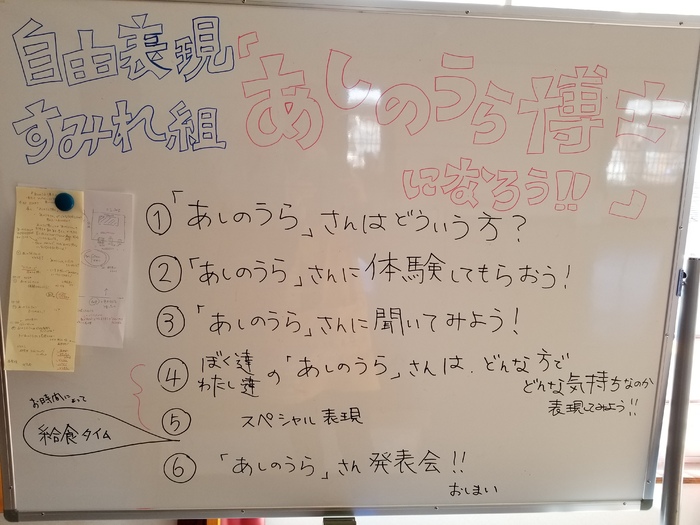 自由表現
すみれ組
「あしのうら博士
になろう!!」
①「あしのうら」さんはどういう方?
②「あしのうら」さんに体験してもらおう!
③「あしのうら」さんに聞いてみよう!
④ ぼく達
わたし達
の「あしのうら」さんは、どんな方で
どんな気持ちなのか
表現してみよう!!
お時間によって
給食タイム
⑤ スペシャル表現
⑥「あしのうら」さん発表会!!
おしまい